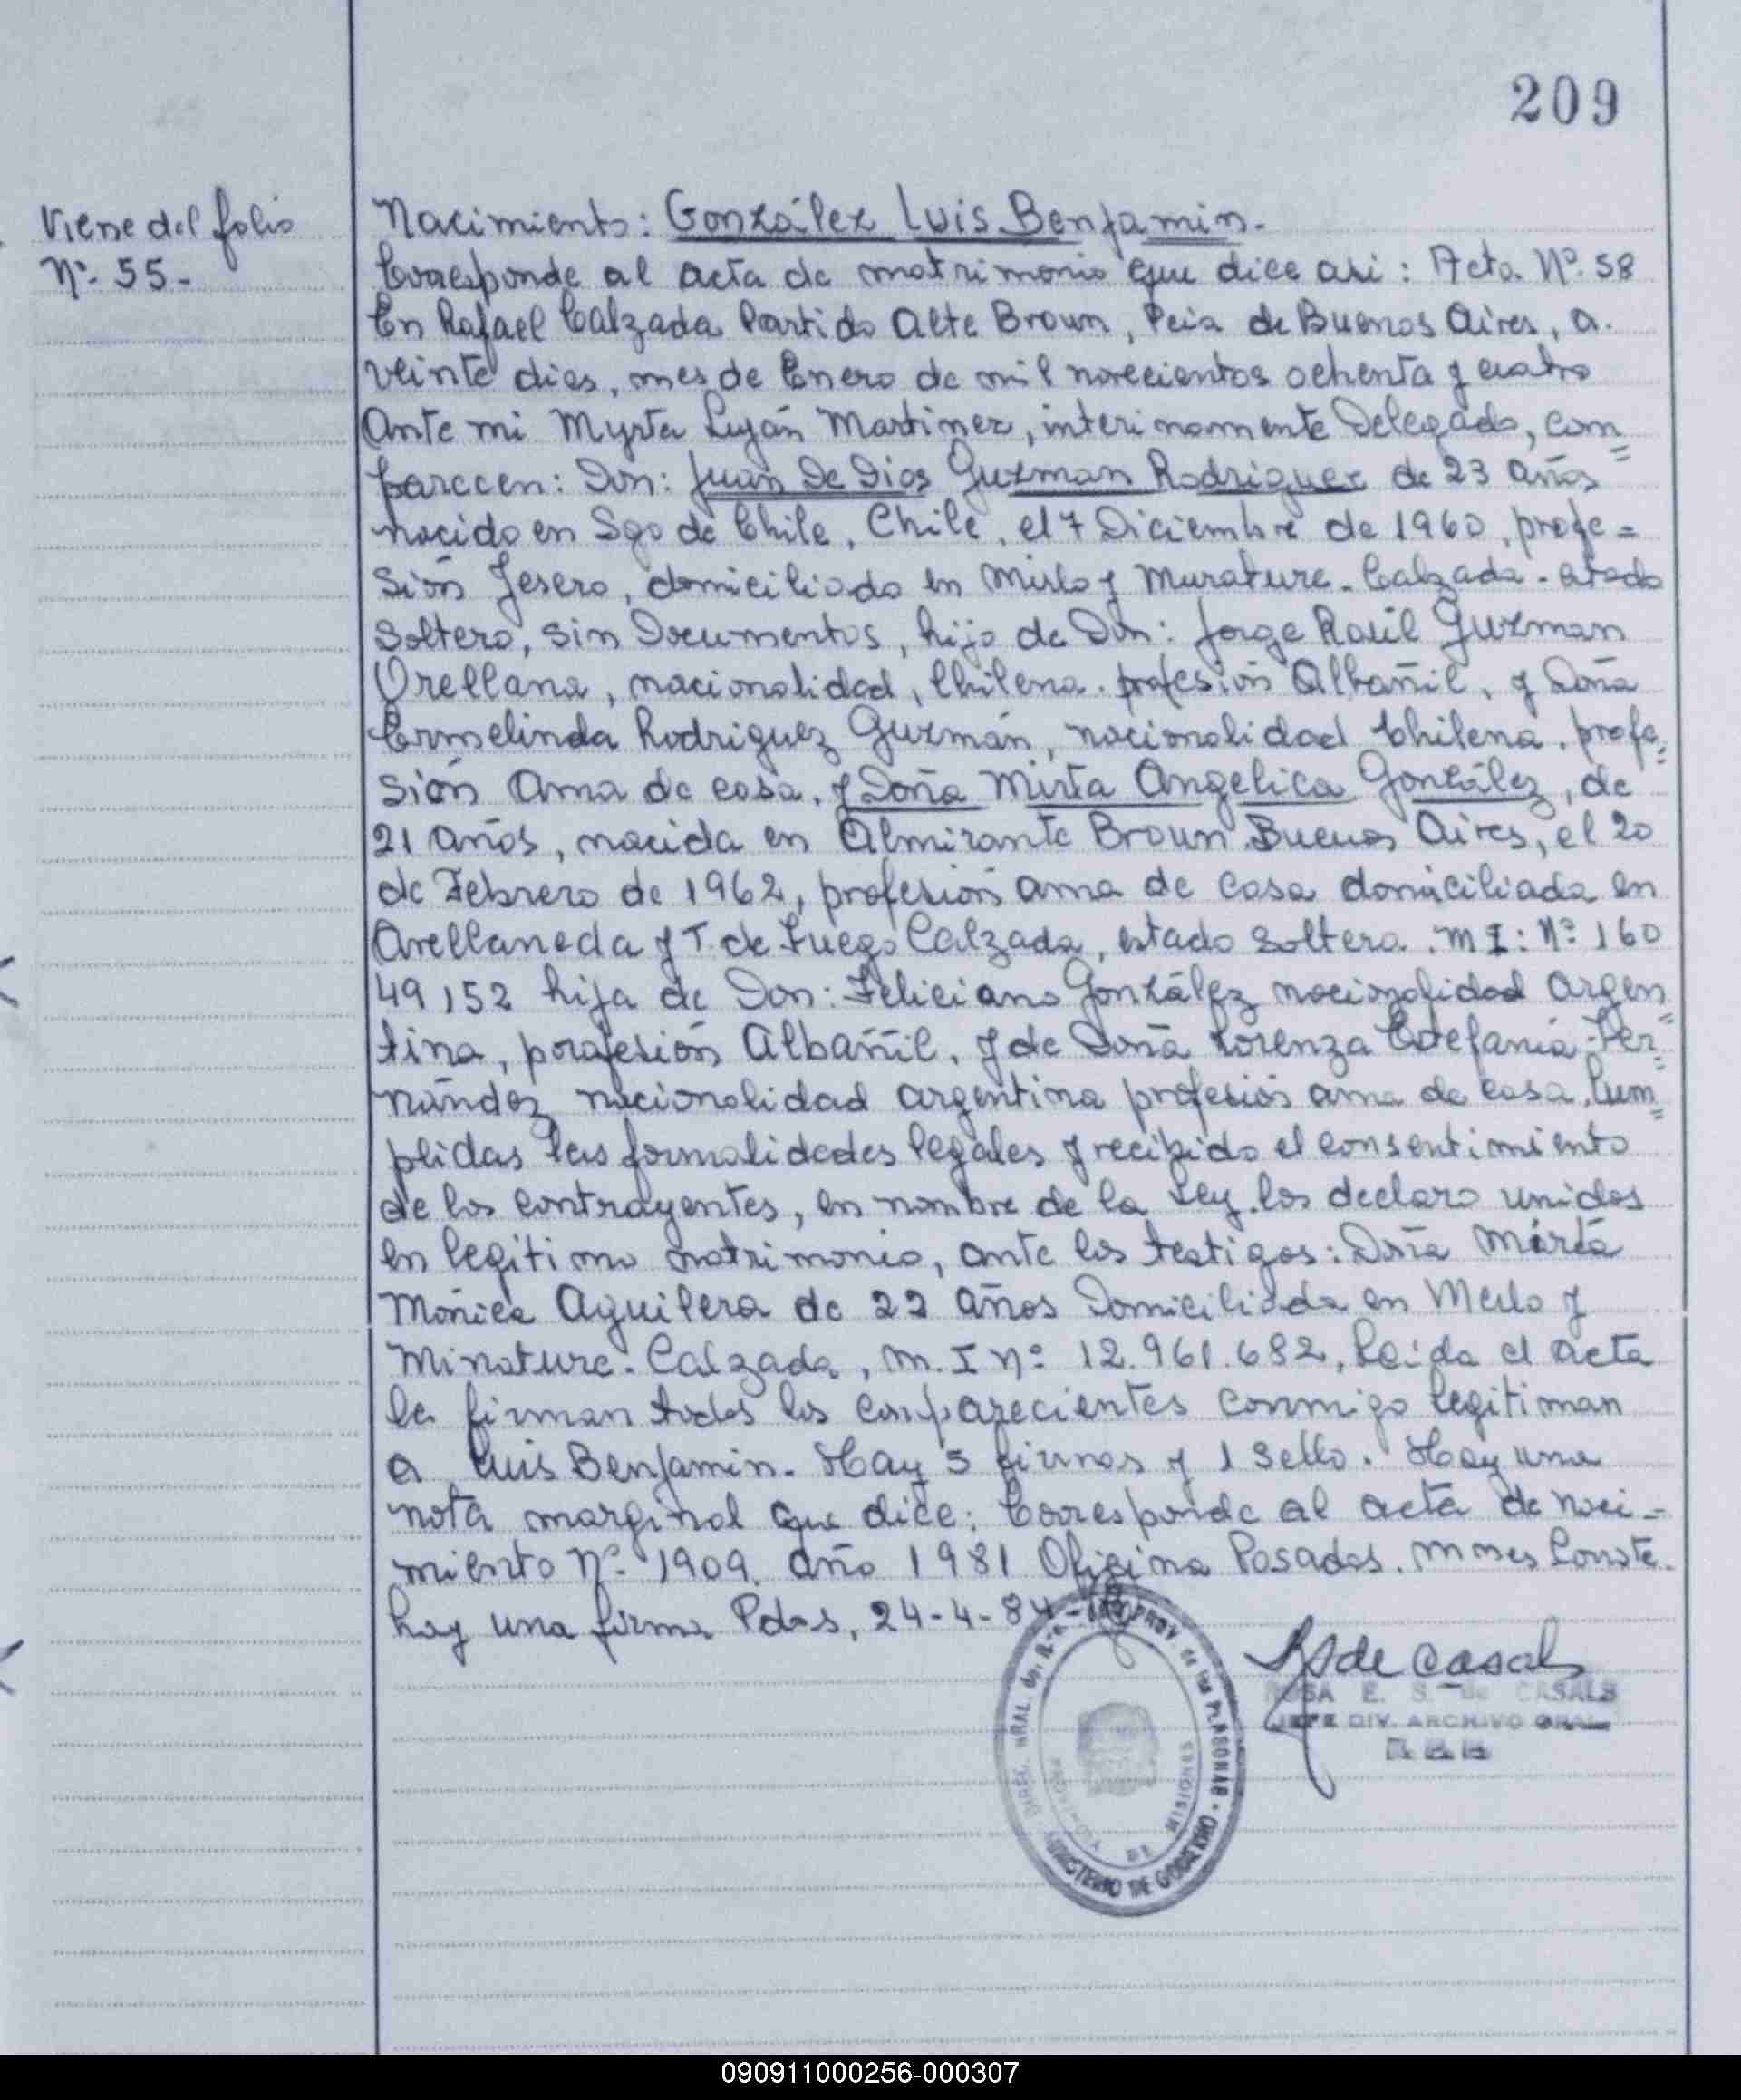 209
Viene del folio
Nº 55-
Nacimiento: González Luis Benjamin.-
Corresponde al acta de matrimonio que dice asi: Acta Nº 58
En Rafael Calzada Partido Alte Brown, Pcia de Buenos Aires, a
veinte dias, mes de Enero de mil novecientos ochenta y cuatro
Ante mi Myrta Luján Martinez, interinamente Delegada, com=
parecen: Don: Juan De Dios Guzman Rodriguez de 23 años
nacido en Sgo de Chile, Chile, el 7 Diciembre de 1960, profe=
sión Yesero, domiciliado en Mirlo y Murature. Calzada - estado
Soltero, sin Documentos, hijo de Don: Jorge Raúl Guzman
Orellana, nacionalidad, Chilena. profesión Albañil, y Doña
Ermelinda Rodriguez Guzmán, nacionalidad Chilena, profe=
sión Ama de casa, y Doña Mirta Angelica González, de
21 años, nacida en Almirante Brown Buenos Aires, el 20
de Febrero de 1962, profesión ama de casa domiciliada en
Avellaneda y T. de Fuego Calzada, estado soltera. M I: Nº 160
49152 hija de Don: Feliciano González nacionalidad Argen=
tina, porofesión Albañil, y de Doña Lorenza Estefania Fer=
nández nacionalidad argentina profesión ama de casa, Cum=
plidas las formalidades legales y recibido el consentimiento
de los contrayentes, en nombre de la Ley los declaro unidos
en legitimo matrimonio, ante los testigos: Doña María
Mónica Aguilera de 22 años Domiciliada en Merlo y
Minature. Calzada, M. I Nº 12.961.682, Leida el acta
la firman todos los comparecientes conmigo legitiman
a Luis Benjamin. Hay 5 firmas y 1 Sello. Hay una
nota marginal que dice: Corresponde al acta de naci-
miento Nº 1909. Año 1981 Oficina Posadas. Mnes Conste.
hay una firma Pdas, 24-4-84-
S de Casals
ROSA E. S. de CASALS
JEFE DIV. ARCHIVO GRAL
PROV. de las PERSONAS
MINISTERIO DE GOBIERNO
PROVINCIA DE MISIONES
090911000256-000307